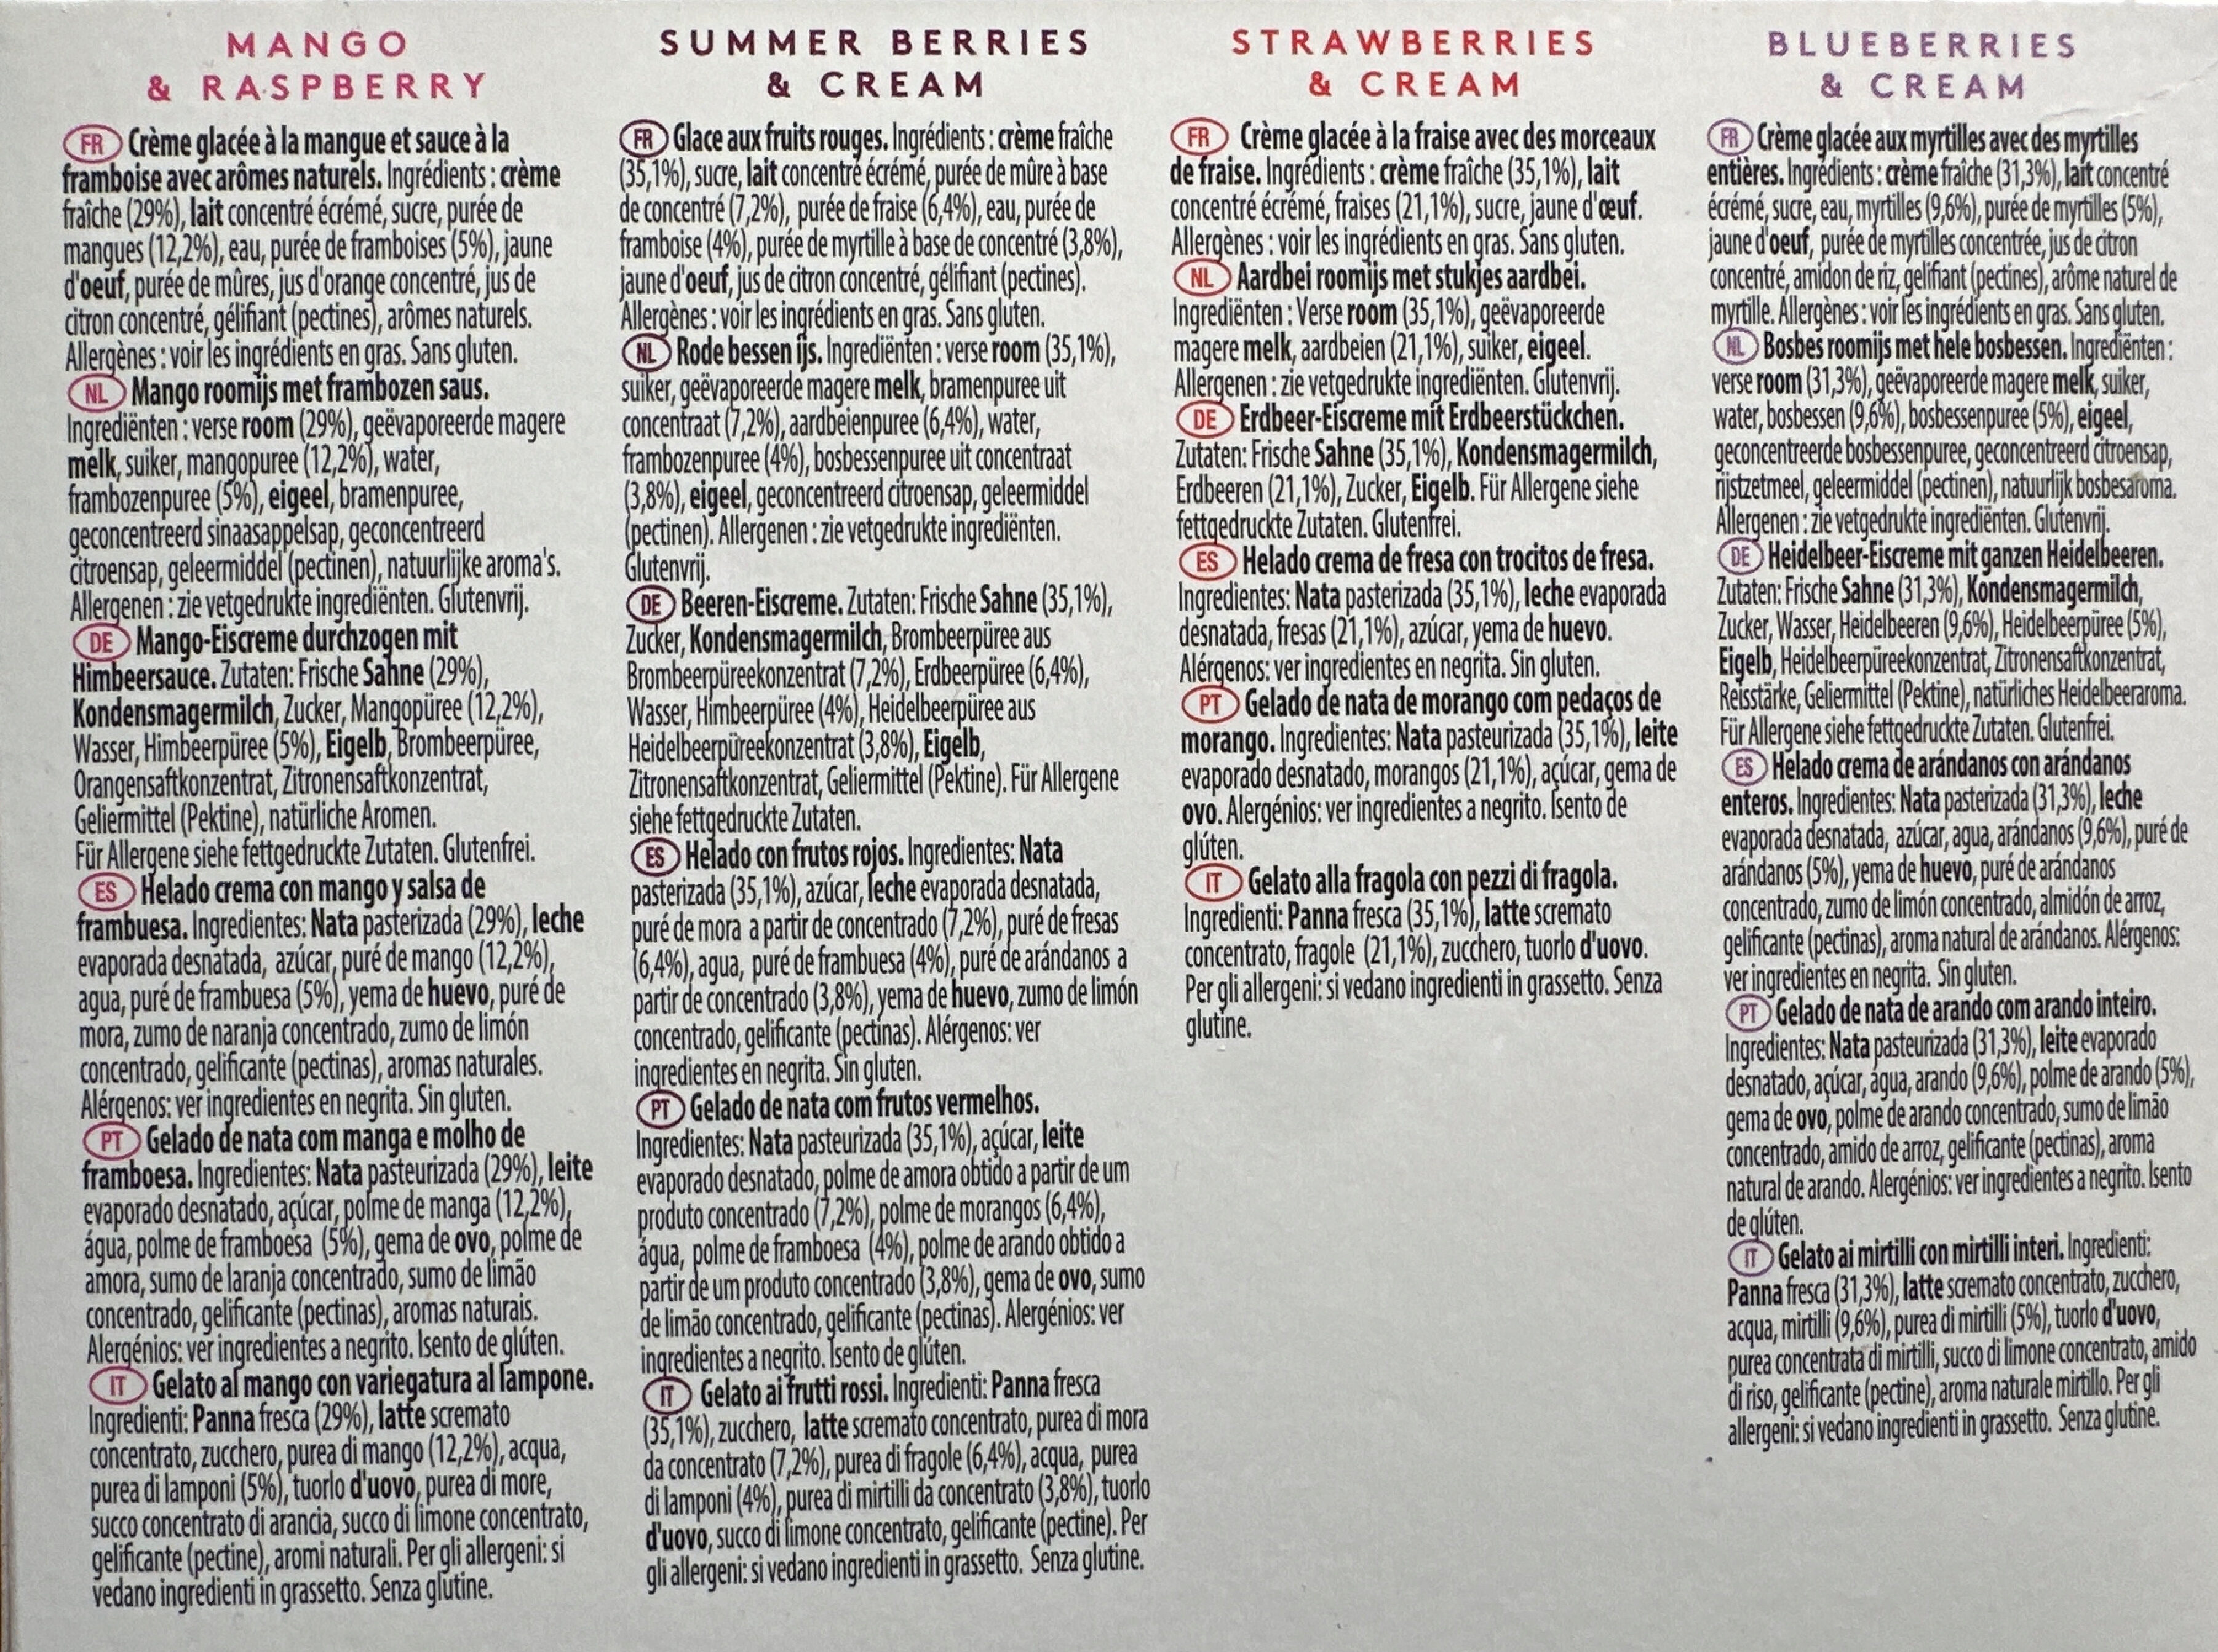 MANGO
& RASPBERRY
FR Crème glacée à la mangue et sauce à la
framboise avec arômes naturels. Ingrédients : crème
fraîche (29%), lait concentré écrémé, sucre, purée de
mangues (12,2%), eau, purée de framboises (5%), jaune
d'oeuf, purée de mûres, jus d'orange concentré, jus de
citron concentré, gélifiant (pectines), arômes naturels.
Allergènes : voir les ingrédients en gras. Sans gluten.
NL Mango roomijs met frambozen saus.
Ingrediënten : verse room (29%), geëvaporeerde magere
melk, suiker, mangopuree (12,2%), water,
frambozenpuree (5%), eigeel, bramenpuree,
geconcentreerd sinaasappelsap, geconcentreerd
citroensap, geleermiddel (pectinen), natuurlijke aroma's.
Allergenen : zie vetgedrukte ingrediënten. Glutenvrij.
DE Mango-Eiscreme durchzogen mit
Himbeersauce. Zutaten: Frische Sahne (29%),
Kondensmagermilch, Zucker, Mangopüree (12,2%),
Wasser, Himbeerpüree (5%), Eigelb, Brombeerpüree,
Orangensaftkonzentrat, Zitronensaftkonzentrat,
Geliermittel (Pektine), natürliche Aromen.
Für Allergene siehe fettgedruckte Zutaten. Glutenfrei.
ES Helado crema con mango y salsa de
frambuesa. Ingredientes: Nata pasterizada (29%), leche
evaporada desnatada, azúcar, puré de mango (12,2%),
agua, puré de frambuesa (5%), yema de huevo, puré de
mora, zumo de naranja concentrado, zumo de limón
concentrado, gelificante (pectinas), aromas naturales.
Alérgenos: ver ingredientes en negrita. Sin gluten.
PT Gelado de nata com manga e molho de
framboesa. Ingredientes: Nata pasteurizada (29%), leite
evaporado desnatado, açúcar, polme de manga (12,2%),
água, polme de framboesa (5%), gema de ovo, polme de
amora, sumo de laranja concentrado, sumo de limão
concentrado, gelificante (pectinas), aromas naturais.
Alergénios: ver ingredientes a negrito. Isento de glúten.
IT Gelato al mango con variegatura al lampone.
Ingredienti: Panna fresca (29%), latte scremato
concentrato, zucchero, purea di mango (12,2%), acqua,
purea di lamponi (5%), tuorlo d'uovo, purea di more,
succo concentrato di arancia, succo di limone concentrato,
gelificante (pectine), aromi naturali. Per gli allergeni: si
vedano ingredienti in grassetto. Senza glutine.
SUMMER BERRIES
& CREAM
FR Glace aux fruits rouges. Ingrédients : crème fraîche
(35,1%), sucre, lait concentré écrémé, purée de mûre à base
de concentré (7,2%), purée de fraise (6,4%), eau, purée de
framboise (4%), purée de myrtille à base de concentré (3,8%),
jaune d'oeuf, jus de citron concentré, gélifiant (pectines).
Allergènes : voir les ingrédients en gras. Sans gluten.
NL Rode bessen ijs. Ingrediënten : verse room (35,1%),
suiker, geëvaporeerde magere melk, bramenpuree uit
concentraat (7,2%), aardbeienpuree (6,4%), water,
frambozenpuree (4%), bosbessenpuree uit concentraat
(3,8%), eigeel, geconcentreerd citroensap, geleermiddel
(pectinen). Allergenen : zie vetgedrukte ingrediënten.
Glutenvrij.
DE Beeren-Eiscreme. Zutaten: Frische Sahne (35,1%),
Zucker, Kondensmagermilch, Brombeerpüree aus
Brombeerpüreekonzentrat (7,2%), Erdbeerpüree (6,4%),
Wasser, Himbeerpüree (4%), Heidelbeerpüree aus
Heidelbeerpüreekonzentrat (3,8%), Eigelb,
Zitronensaftkonzentrat, Geliermittel (Pektine). Für Allergene
siehe fettgedruckte Zutaten.
ES Helado con frutos rojos. Ingredientes: Nata
pasterizada (35,1%), azúcar, leche evaporada desnatada,
puré de mora a partir de concentrado (7,2%), puré de fresas
(6,4%), agua, puré de frambuesa (4%), puré de arándanos a
partir de concentrado (3,8%), yema de huevo, zumo de limón
concentrado, gelificante (pectinas). Alérgenos: ver
ingredientes en negrita. Sin gluten.
PT Gelado de nata com frutos vermelhos.
Ingredientes: Nata pasteurizada (35,1%), açúcar, leite
evaporado desnatado, polme de amora obtido a partir de um
produto concentrado (7,2%), polme de morangos (6,4%),
água, polme de framboesa (4%), polme de arando obtido a
partir de um produto concentrado (3,8%), gema de ovo, sumo
de limão concentrado, gelificante (pectinas). Alergénios: ver
ingredientes a negrito. Isento de glúten.
IT Gelato ai frutti rossi. Ingredienti: Panna fresca
(35,1%), zucchero, latte scremato concentrato, purea di mora
da concentrato (7,2%), purea di fragole (6,4%), acqua, purea
di lamponi (4%), purea di mirtilli da concentrato (3,8%), tuorlo
d'uovo, succo di limone concentrato, gelificante (pectine). Per
gli allergeni: si vedano ingredienti in grassetto. Senza glutine.
STRAWBERRIES
& CREAM
FR Crème glacée à la fraise avec des morceaux
de fraise. Ingrédients : crème fraîche (35,1%), lait
concentré écrémé, fraises (21,1%), sucre, jaune d'œuf.
Allergènes : voir les ingrédients en gras. Sans gluten.
NL Aardbei roomijs met stukjes aardbei.
Ingrediënten : Verse room (35,1%), geëvaporeerde
magere melk, aardbeien (21,1%), suiker, eigeel.
Allergenen : zie vetgedrukte ingrediënten. Glutenvrij.
DE Erdbeer-Eiscreme mit Erdbeerstückchen.
Zutaten: Frische Sahne (35,1%), Kondensmagermilch,
Erdbeeren (21,1%), Zucker, Eigelb. Für Allergene siehe
fettgedruckte Zutaten. Glutenfrei.
ES Helado crema de fresa con trocitos de fresa.
Ingredientes: Nata pasterizada (35,1%), leche evaporada
desnatada, fresas (21,1%), azúcar, yema de huevo.
Alérgenos: ver ingredientes en negrita. Sin gluten.
PT Gelado de nata de morango com pedaços de
morango. Ingredientes: Nata pasteurizada (35,1%), leite
evaporado desnatado, morangos (21,1%), açúcar, gema de
ovo. Alergénios: ver ingredientes a negrito. Isento de
glúten.
IT Gelato alla fragola con pezzi di fragola.
Ingredienti: Panna fresca (35,1%), latte scremato
concentrato, fragole (21,1%), zucchero, tuorlo d'uovo.
Per gli allergeni: si vedano ingredienti in grassetto. Senza
glutine.
BLUEBERRIES
& CREAM
FR Crème glacée aux myrtilles avec des myrtilles
entières. Ingrédients : crème fraîche (31,3%), lait concentré
écrémé, sucre, eau, myrtilles (9,6%), purée de myrtilles (5%),
jaune d'oeuf, purée de myrtilles concentrée, jus de citron
concentré, amidon de riz, gelifiant (pectines), arôme naturel de
myrtille. Allergènes : voir les ingrédients en gras. Sans gluten.
NL Bosbes roomijs met hele bosbessen. Ingrediënten :
verse room (31,3%), geëvaporeerde magere melk, suiker,
water, bosbessen (9,6%), bosbessenpuree (5%), eigeel,
geconcentreerde bosbessenpuree, geconcentreerd citroensap,
rijstzetmeel, geleermiddel (pectinen), natuurlijk bosbesaroma.
Allergenen : zie vetgedrukte ingrediënten. Glutenvrij.
DE Heidelbeer-Eiscreme mit ganzen Heidelbeeren.
Zutaten: Frische Sahne (31,3%), Kondensmagermilch,
Zucker, Wasser, Heidelbeeren (9,6%), Heidelbeerpüree (5%),
Eigelb, Heidelbeerpüreekonzentrat, Zitronensaftkonzentrat,
Reisstärke, Geliermittel (Pektine), natürliches Heidelbeeraroma.
Für Allergene siehe fettgedruckte Zutaten. Glutenfrei.
ES Helado crema de arándanos con arándanos
enteros. Ingredientes: Nata pasterizada (31,3%), leche
evaporada desnatada, azúcar, agua, arándanos (9,6%), puré de
arándanos (5%), yema de huevo, puré de arándanos
concentrado, zumo de limón concentrado, almidón de arroz,
gelificante (pectinas), aroma natural de arándanos. Alérgenos:
ver ingredientes en negrita. Sin gluten.
PT Gelado de nata de arando com arando inteiro.
Ingredientes: Nata pasteurizada (31,3%), leite evaporado
desnatado, açúcar, água, arando (9,6%), polme de arando (5%),
gema de ovo, polme de arando concentrado, sumo de limão
concentrado, amido de arroz, gelificante (pectinas), aroma
natural de arando. Alergénios: ver ingredientes a negrito. Isento
de glúten.
IT Gelato ai mirtilli con mirtilli interi. Ingredienti:
Panna fresca (31,3%), latte scremato concentrato, zucchero,
acqua, mirtilli (9,6%), purea di mirtilli (5%), tuorlo d'uovo,
purea concentrata di mirtilli, succo di limone concentrato, amido
di riso, gelificante (pectine), aroma naturale mirtillo. Per gli
allergeni: si vedano ingredienti in grassetto. Senza glutine.